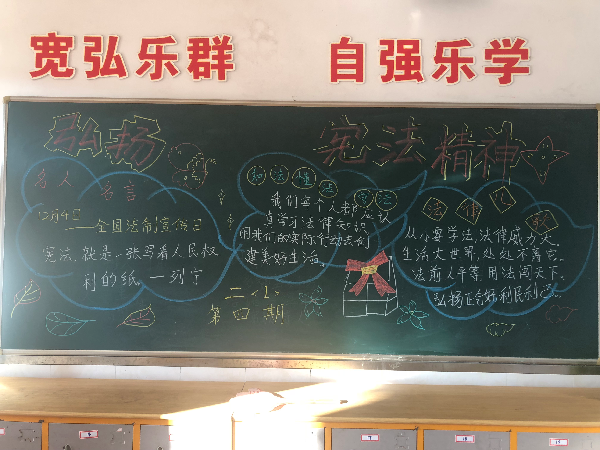 宽弘乐群
自强乐学
弘扬
宪法精神
名人名言
12月4日
——全国法制宣传日
宪法,就是一张写着人民权
利的纸。—列宁
知法懂法
我们每个人都应认
真学习法律知识
用我们的实际行动去创
建美好生活。
二〈1〉
第四期
法律儿歌
从小要学法,法律威力大。
生活大世界,处处不离它。
法前人平等,用法闯天下。